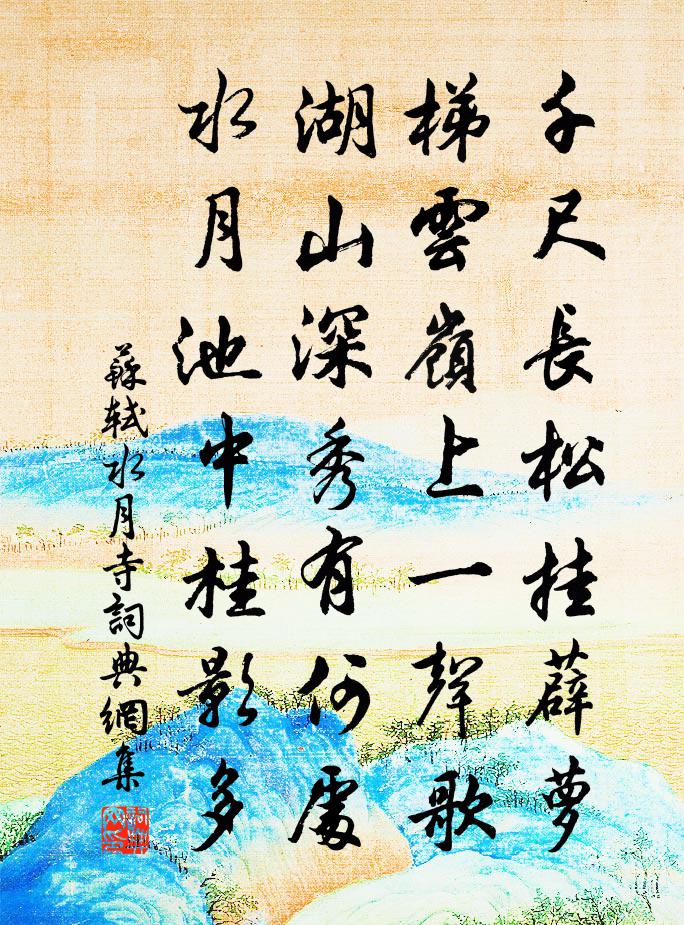 千尺長松挂薜萝
梯雲嶺上一聲歌
湖山深秀有何處
水月池中桂影多
蘇軾水月寺詞典網集